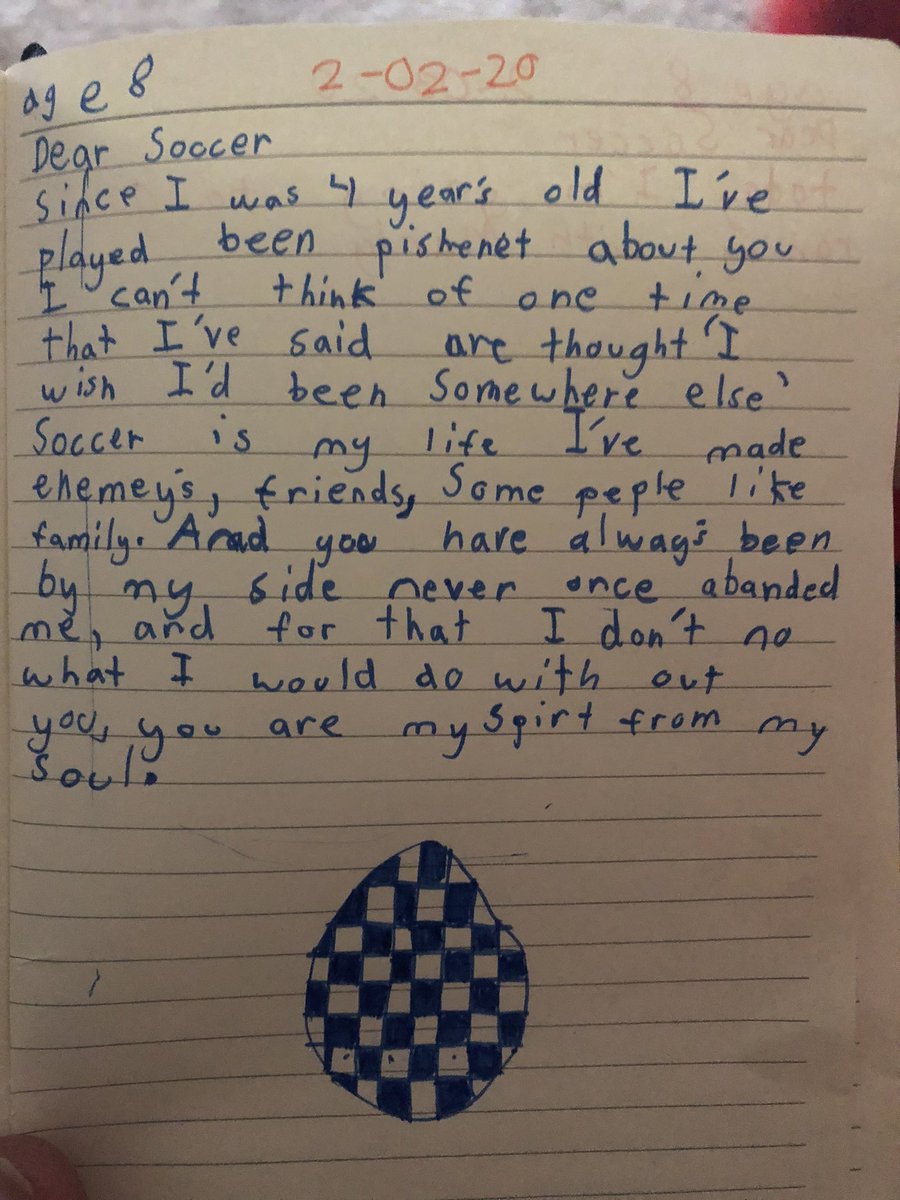 age 8 2-02-20
Dear Soccer
since I was 4 year's old I've
played been pishenet about you
I can't think of one time
that I've said are thought "I
wish I'd been Somewhere else"
Soccer is my life I've made
enemey's, friends, Some peple like
family. Anad you have always been
by my side never once abanded
me, and for that I don't no
what I would do with out
you, you are my Spirt from my
Soul.